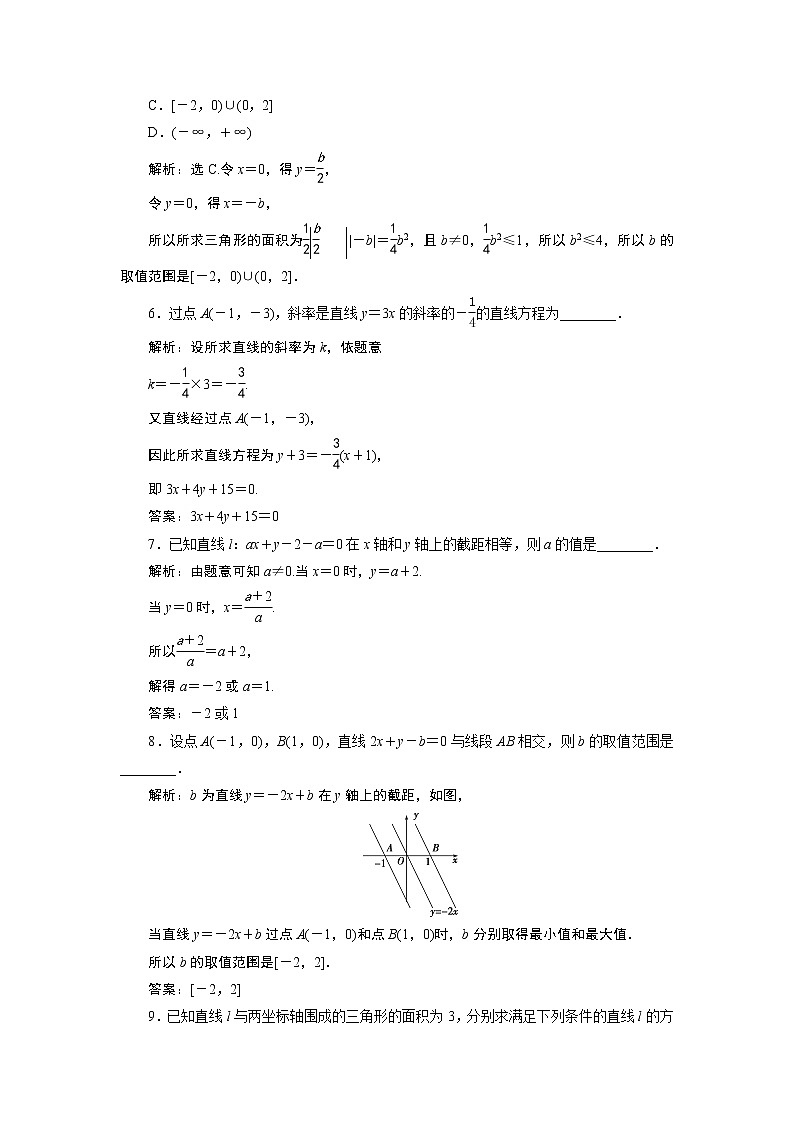 C．[－2，0)∪(0，2]
D．(－∞，＋∞)
解析：选 C.令 x＝0，得 y＝b/2，
令 y＝0，得 x＝－b，
所以所求三角形的面积为1/2|b/2||－b|＝1/4b²，且 b≠0，1/4b²≤1，所以 b²≤4，所以 b 的
取值范围是[－2，0)∪(0，2]．
6．过点 A(－1，－3)，斜率是直线 y＝3x 的斜率的－1/4的直线方程为________．
解析：设所求直线的斜率为 k，依题意
k＝－1/4×3＝－3/4.
又直线经过点 A(－1，－3)，
因此所求直线方程为 y＋3＝－3/4(x＋1)，
即 3x＋4y＋15＝0.
答案：3x＋4y＋15＝0
7．已知直线 l：ax＋y－2－a＝0 在 x 轴和 y 轴上的截距相等，则 a 的值是________．
解析：由题意可知 a≠0.当 x＝0 时，y＝a＋2.
当 y＝0 时，x＝(a＋2)/a.
所以(a＋2)/a＝a＋2，
解得 a＝－2 或 a＝1.
答案：－2 或 1
8．设点 A(－1，0)，B(1，0)，直线 2x＋y－b＝0 与线段 AB 相交，则 b 的取值范围是
________．
解析：b 为直线 y＝－2x＋b 在 y 轴上的截距，如图，
y
A B
−1 O 1 x
y=−2x
当直线 y＝－2x＋b 过点 A(－1，0)和点 B(1，0)时，b 分别取得最小值和最大值．
所以 b 的取值范围是[－2，2]．
答案：[－2，2]
9．已知直线 l 与两坐标轴围成的三角形的面积为 3，分别求满足下列条件的直线 l 的方